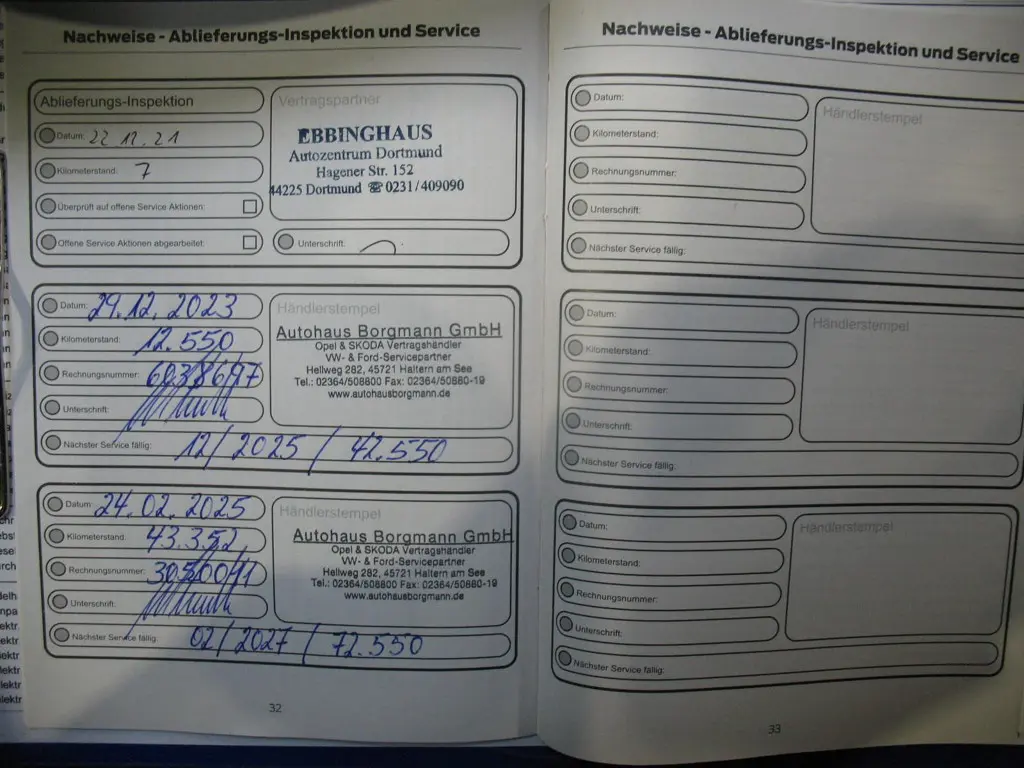 Nachweise - Ablieferungs-Inspektion und Service
Ablieferungs-Inspektion
Datum: 22 12.21
Kilometerstand: 7
Überprüft auf offene Service Aktionen:
Offene Service Aktionen abgearbeitet:
Vertragspartner
EBBINGHAUS
Autozentrum Dortmund
Hagener Str. 152
44225 Dortmund ☎ 0231/409090
Unterschrift:
Datum: 29.12.2023
Kilometerstand: 12.550
Rechnungsnummer:
Unterschrift:
Nächster Service fällig: 12/2025 / 42.550
Händlerstempel
Autohaus Borgmann GmbH
Opel & SKODA Vertragshändler
VW- & Ford-Servicepartner
Hellweg 282, 45721 Haltern am See
Tel.: 02364/508800 Fax: 02364/50880-19
www.autohausborgmann.de
Datum: 24.02.2025
Kilometerstand: 43.352
Rechnungsnummer:
Unterschrift:
Nächster Service fällig: 02/2027 / 72.550
Händlerstempel
Autohaus Borgmann GmbH
Opel & SKODA Vertragshändler
VW- & Ford-Servicepartner
Hellweg 282, 45721 Haltern am See
Tel.: 02364/508800 Fax: 02364/50880-19
www.autohausborgmann.de
32
Nachweise - Ablieferungs-Inspektion und Service
Datum:
Kilometerstand:
Rechnungsnummer:
Unterschrift:
Nächster Service fällig:
Händlerstempel
Datum:
Kilometerstand:
Rechnungsnummer:
Unterschrift:
Nächster Service fällig:
Händlerstempel
Datum:
Kilometerstand:
Rechnungsnummer:
Unterschrift:
Nächster Service fällig:
Händlerstempel
33